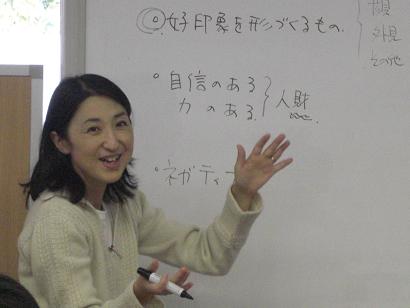 ◎好印象を形づくるもの.
外見
その他
・自信のある
力のある.
人財
・ネガティ